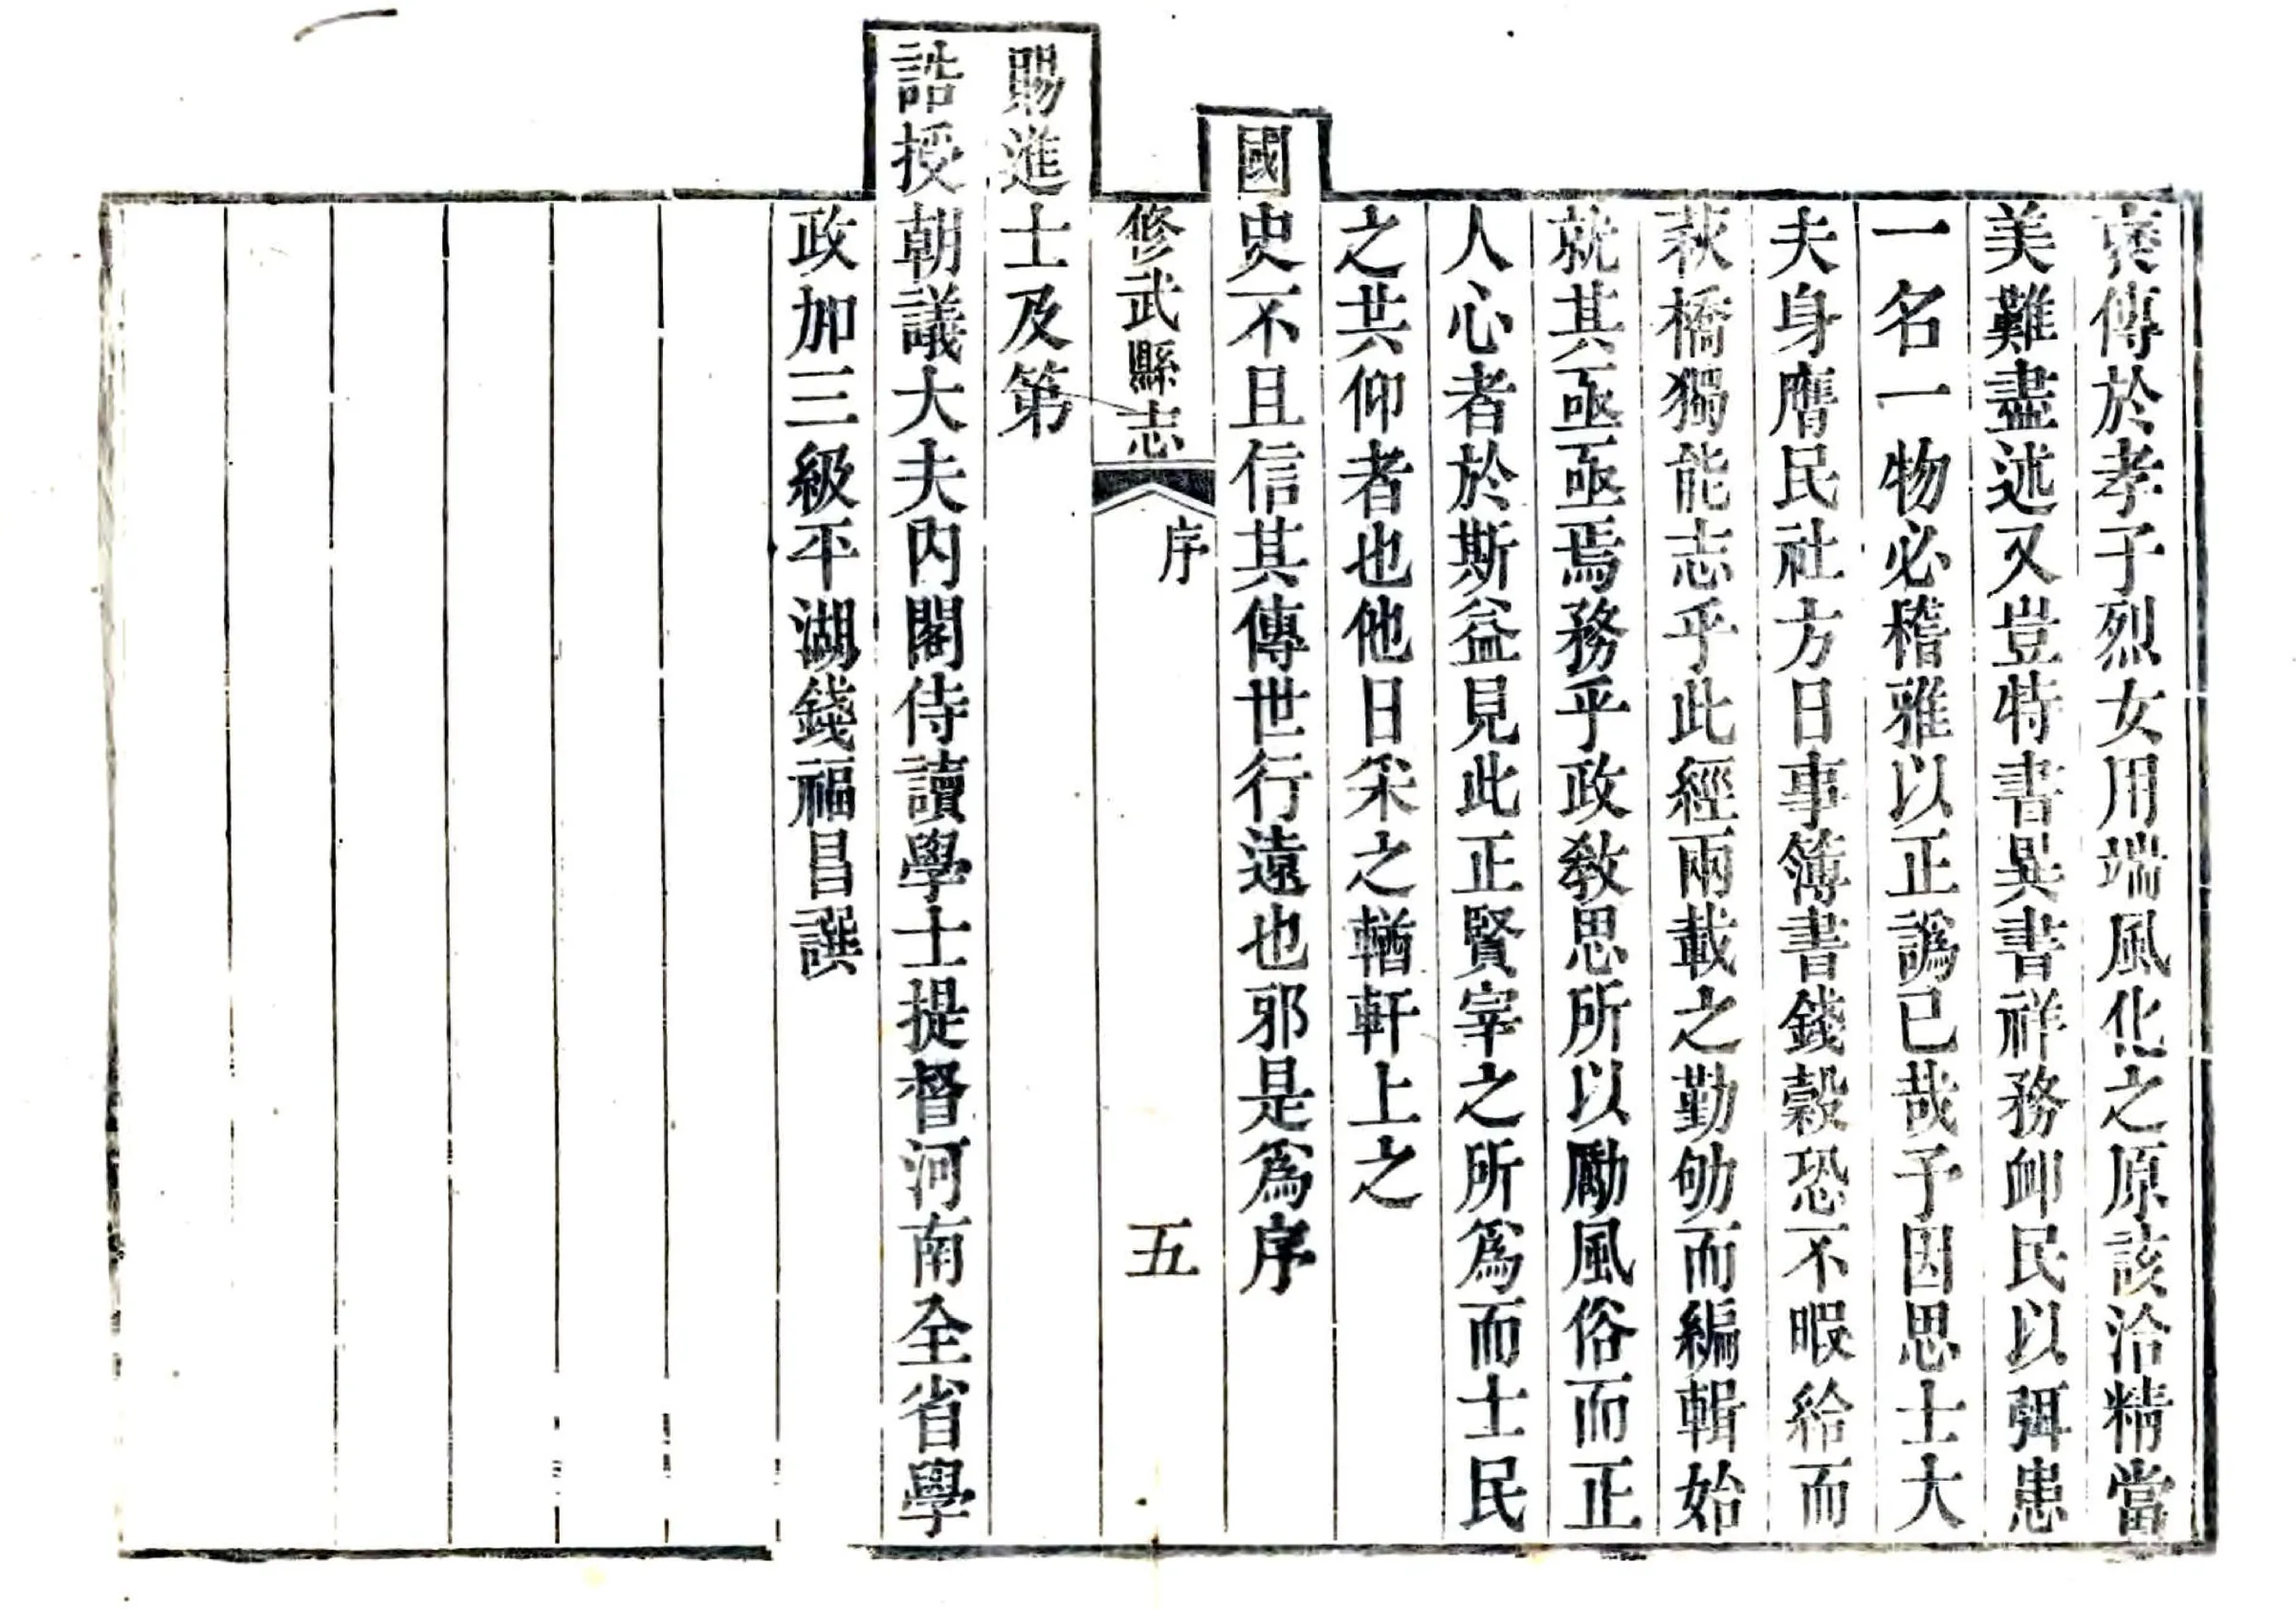 傳於孝子烈女用端風化之原該洽精當
美難盡述又豈特書異書祥務卹民以弭患
一名一物必稽雅以正譌已哉予因思士大
夫身膺民社方日事簿書錢穀恐不暇給而
萩橋獨能志乎此經兩載之勤劬而編輯始
就其亟亟焉務乎政教思所以勵風俗而正
人心者於斯益見此正賢宰之所爲而士民
之共仰者也他日采之輶軒上之
國史不且信其傳世行遠也邪是爲序
修武縣志
序
五
賜進士及第
誥授朝議大夫內閣侍讀學士提督河南全省學
政加三級平湖錢福昌譔